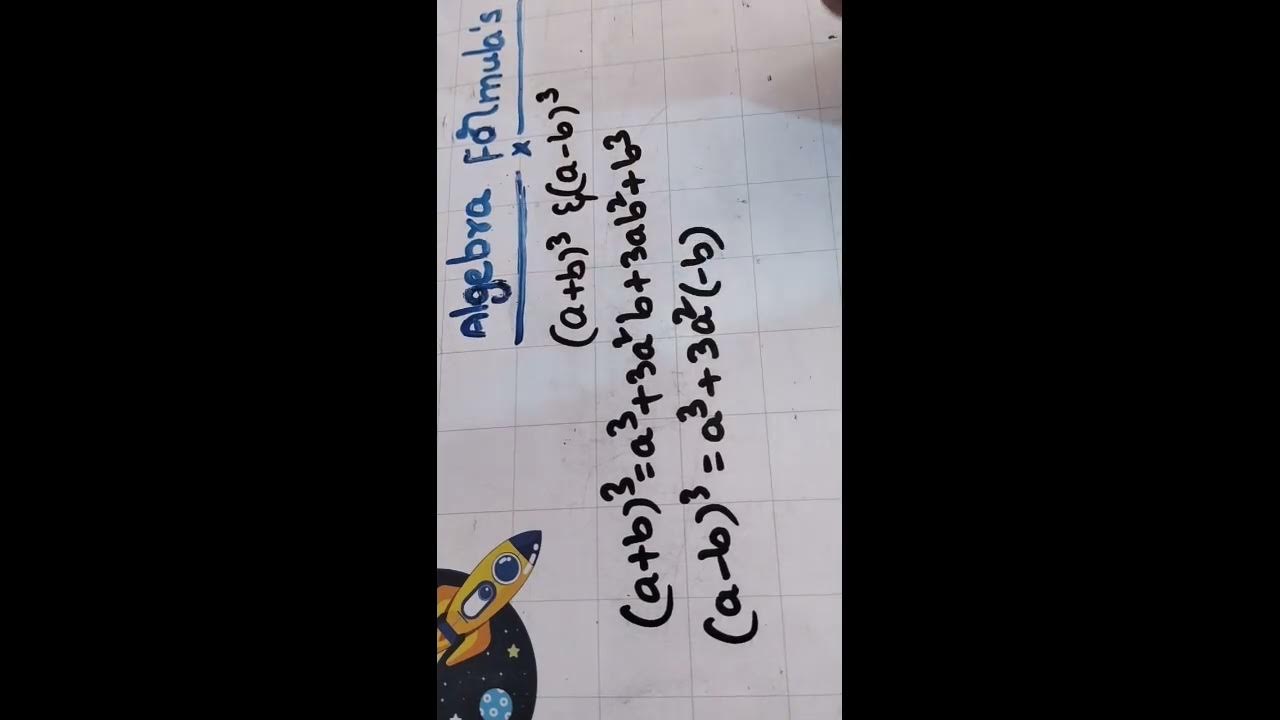 Algebra Formula's
x
(a+b)³ & (a-b)³
(a+b)³=a³+3a²b+3ab²+b³
(a-b)³ = a³+3a²(-b)